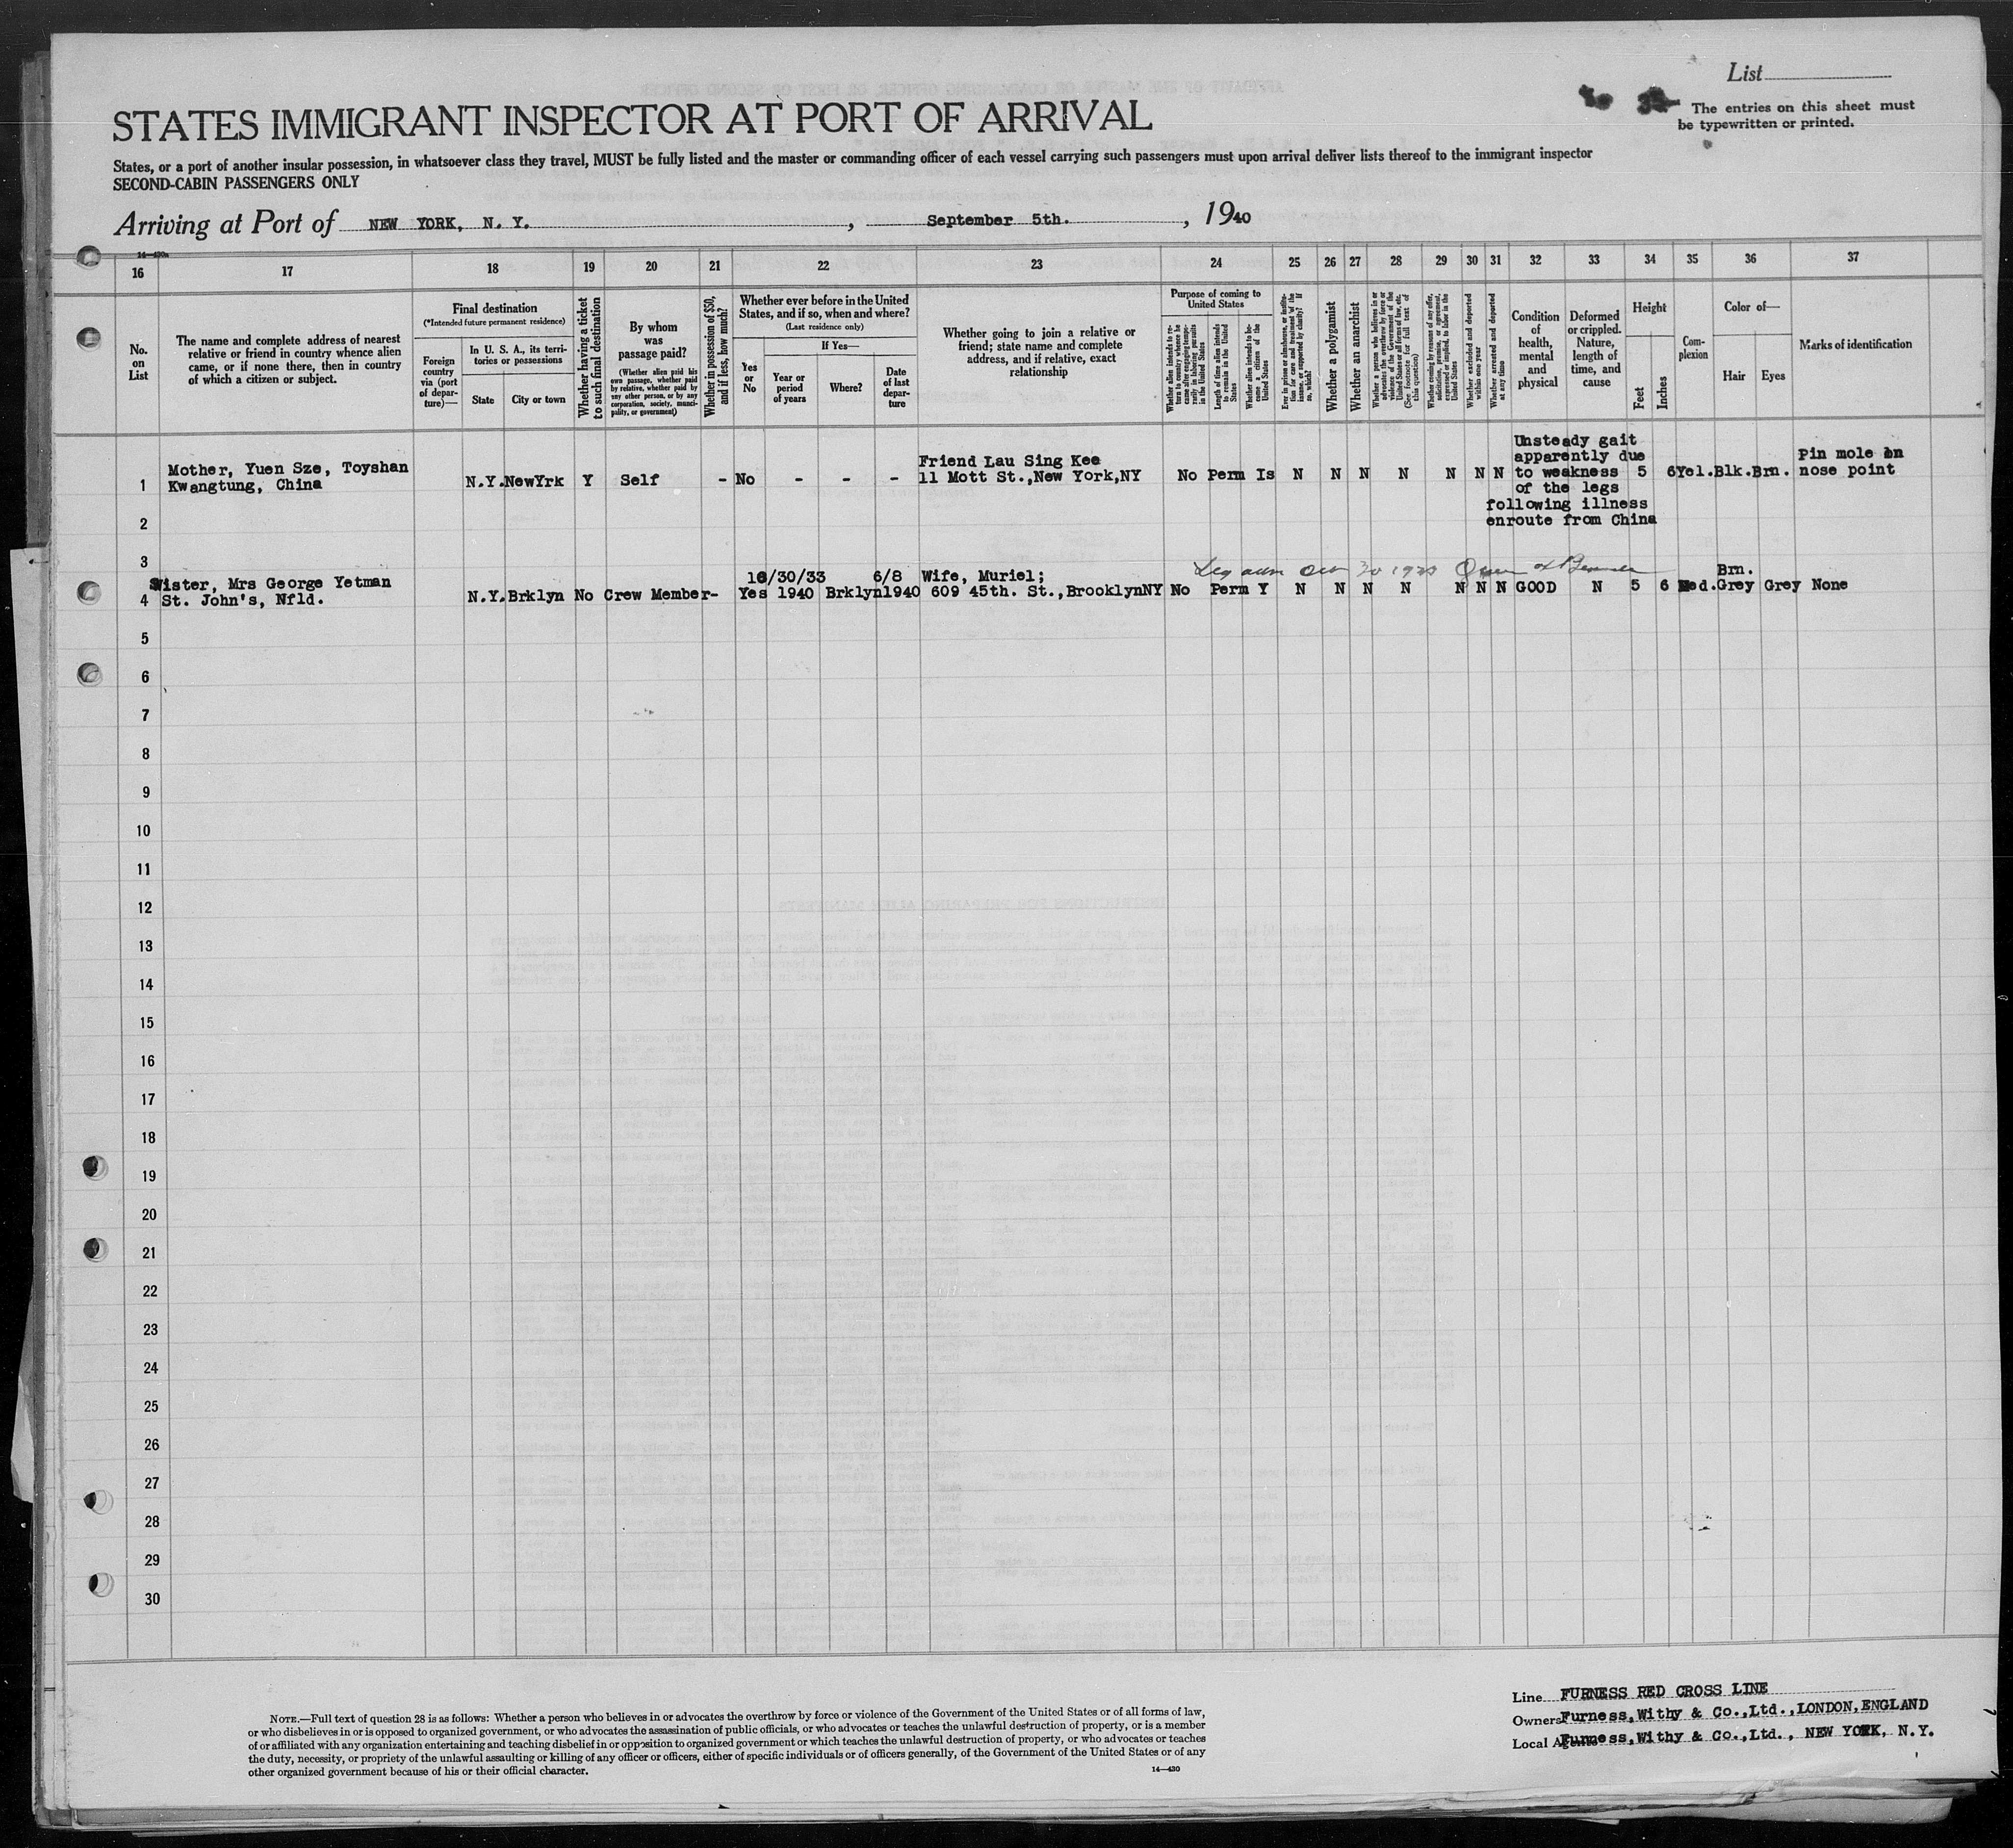 List
The entries on this sheet must
be typewritten or printed.
STATES IMMIGRANT INSPECTOR AT PORT OF ARRIVAL
States, or a port of another insular possession, in whatsoever class they travel, MUST be fully listed and the master or commanding officer of each vessel carrying such passengers must upon arrival deliver lists thereof to the immigrant inspector
SECOND-CABIN PASSENGERS ONLY
Arriving at Port of NEW YORK, N. Y. , September 5th. , 1940
16 17 18 19 20 21 22 23 24 25 26 27 28 29 30 31 32 33 34 35 36 37
No. on List
The name and complete address of nearest
relative or friend in country whence alien
came, or if none there, then in country
of which a citizen or subject.
Final destination
(*Intended future permanent residence)
Foreign country via (port of departure)—
In U. S. A., its territories or possessions
State
City or town
Whether having a ticket to such final destination
By whom was passage paid?
(Whether alien paid his own passage, whether paid by relative, whether paid by any other person, or by any corporation, society, municipality, or government)
Whether in possession of $50, and if less, how much?
Whether ever before in the United States, and if so, when and where?
(Last residence only)
Yes or No
If Yes—
Year or period of years
Where?
Date of last departure
Whether going to join a relative or
friend; state name and complete
address, and if relative, exact
relationship
Purpose of coming to United States
Whether alien intends to return to country whence he came after engaging temporarily in laboring pursuits in the United States
Length of time alien intends to remain in the United States
Whether alien intends to become a citizen of the United States
Ever in prison or almshouse, or institution for care and treatment of the insane, or supported by charity? If so, which?
Whether a polygamist
Whether an anarchist
Whether a person who believes in or advocates the overthrow by force or violence of the Government of the United States or all forms of law, etc. (See footnote for full text of this question)
Whether coming by reason of any offer, solicitation, promise, or agreement, expressed or implied, to labor in the United States
Whether excluded and deported within one year
Whether arrested and deported at any time
Condition of health, mental and physical
Deformed or crippled. Nature, length of time, and cause
Height
Feet
Inches
Complexion
Color of—
Hair
Eyes
Marks of identification
1 Mother, Yuen Sze, Toyshan
Kwangtung, China
N.Y. NewYrk Y Self - No - - -
Friend Lau Sing Kee
11 Mott St.,New York,NY
No Perm Is N N N N N N N
Unsteady gait
apparently due
to weakness
of the legs
following illness
enroute from China
5 6 Yel. Blk. Brn.
Pin mole on
nose point
2
3
4 Sister, Mrs George Yetman
St. John's, Nfld.
N.Y. Brklyn No Crew Member -
10/30/33 6/8
Yes 1940 Brklyn 1940
Wife, Muriel;
609 45th. St.,BrooklynNY
No Perm Y N N N N N N N GOOD N 5 6 Med.
Brn.
Grey Grey None
5
6
7
8
9
10
11
12
13
14
15
16
17
18
19
20
21
22
23
24
25
26
27
28
29
30
NOTE.—Full text of question 28 is as follows: Whether a person who believes in or advocates the overthrow by force or violence of the Government of the United States or of all forms of law,
or who disbelieves in or is opposed to organized government, or who advocates the assassination of public officials, or who advocates or teaches the unlawful destruction of property, or is a member
of or affiliated with any organization entertaining and teaching disbelief in or opposition to organized government or which teaches the unlawful destruction of property, or who advocates or teaches
the duty, necessity, or propriety of the unlawful assaulting or killing of any officer or officers, either of specific individuals or of officers generally, of the Government of the United States or of any
other organized government because of his or their official character.
14—430
Line FURNESS RED CROSS LINE
Owners Furness, Withy & Co.,Ltd., LONDON, ENGLAND
Local Agents Furness, Withy & Co.,Ltd., NEW YORK, N.Y.